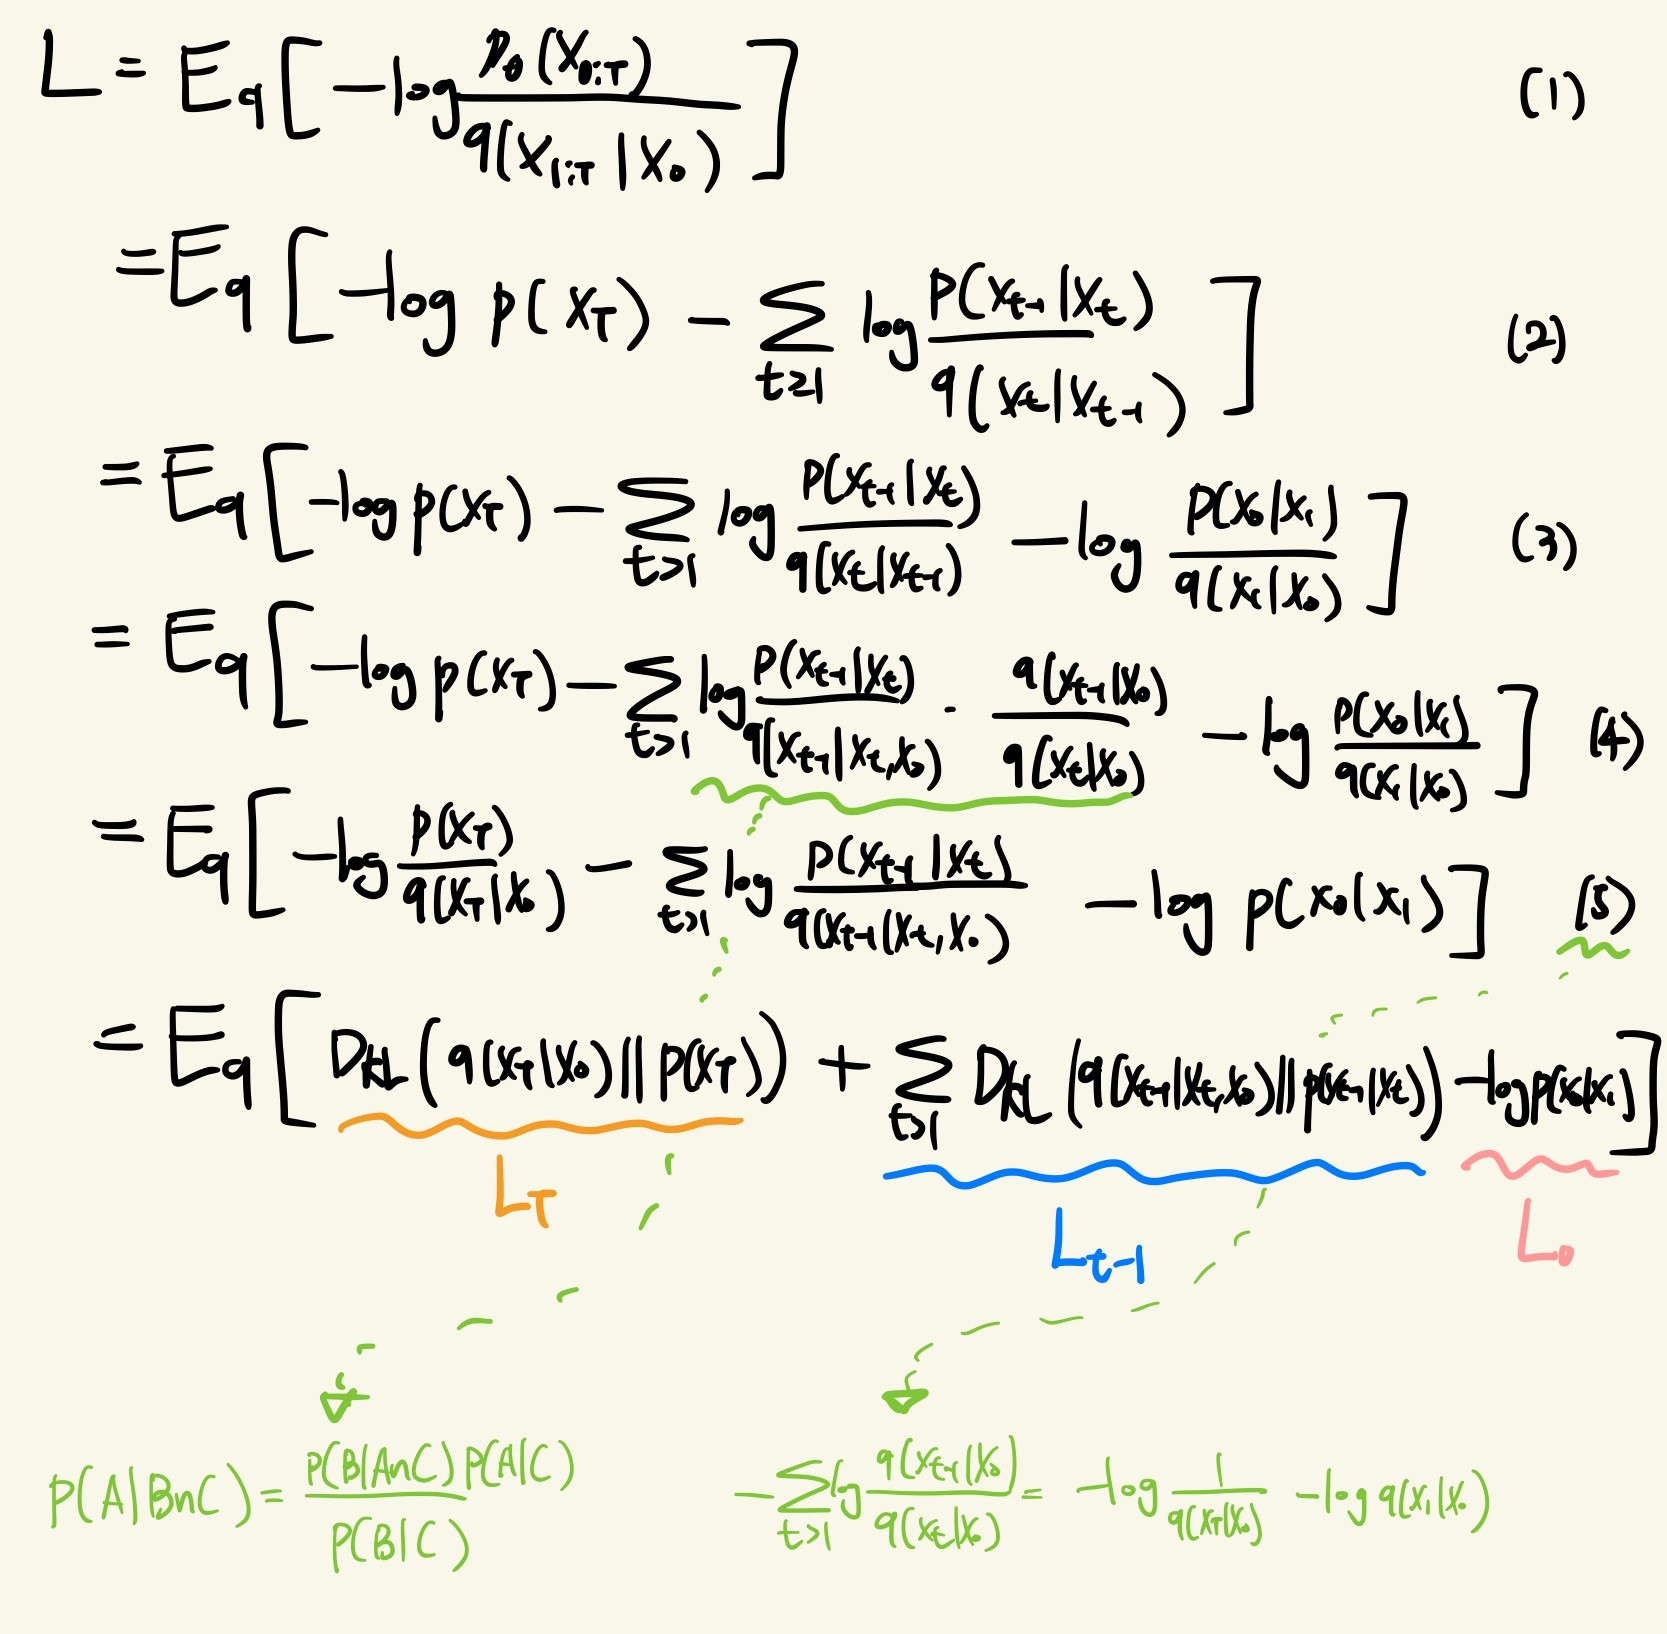 L = E_q [ -log p_θ(X_{0:T}) / q(X_{1:T} | X_0) ] (1)
= E_q [ -log p(X_T) - Σ_{t≥1} log p(X_{t-1}|X_t) / q(X_t|X_{t-1}) ] (2)
= E_q [ -log p(X_T) - Σ_{t>1} log p(X_{t-1}|X_t) / q(X_t|X_{t-1}) - log p(X_0|X_1) / q(X_1|X_0) ] (3)
= E_q [ -log p(X_T) - Σ_{t>1} log p(X_{t-1}|X_t) / q(X_{t-1}|X_t,X_0) · q(X_{t-1}|X_0) / q(X_t|X_0) - log p(X_0|X_1) / q(X_1|X_0) ] (4)
= E_q [ -log p(X_T) / q(X_T|X_0) - Σ_{t>1} log p(X_{t-1}|X_t) / q(X_{t-1}|X_t,X_0) - log p(X_0|X_1) ] (5)
= E_q [ D_{KL}( q(X_T|X_0) || p(X_T) ) + Σ_{t>1} D_{KL}( q(X_{t-1}|X_t,X_0) || p(X_{t-1}|X_t) ) - log p(X_0|X_1) ]
L_T L_{t-1} L_0
P(A|B∩C) = P(B|A∩C) P(A|C) / P(B|C) - Σ_{t>1} log q(X_{t-1}|X_0) / q(X_t|X_0) = -log 1 / q(X_T|X_0) - log q(X_1|X_0)